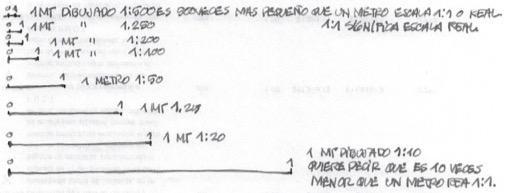 0 1 1 MT DIBUJADO 1:500 ES 500 VECES MAS PEQUEÑO QUE UN METRO ESCALA 1:1 O REAL
0 1 1 MT " 1.250 1:1 SIGNIFICA ESCALA REAL
0 1 1 MT " 1:200
0 1 1 MT " 1:100
0 1 1 METRO 1:50
0 1 1 MT 1.25
0 1 1 MT 1:20
0 1 1 MT DIBUJADO 1:10
QUIERE DECIR QUE ES 10 VECES
MENOR QUE UN METRO REA 1:1.